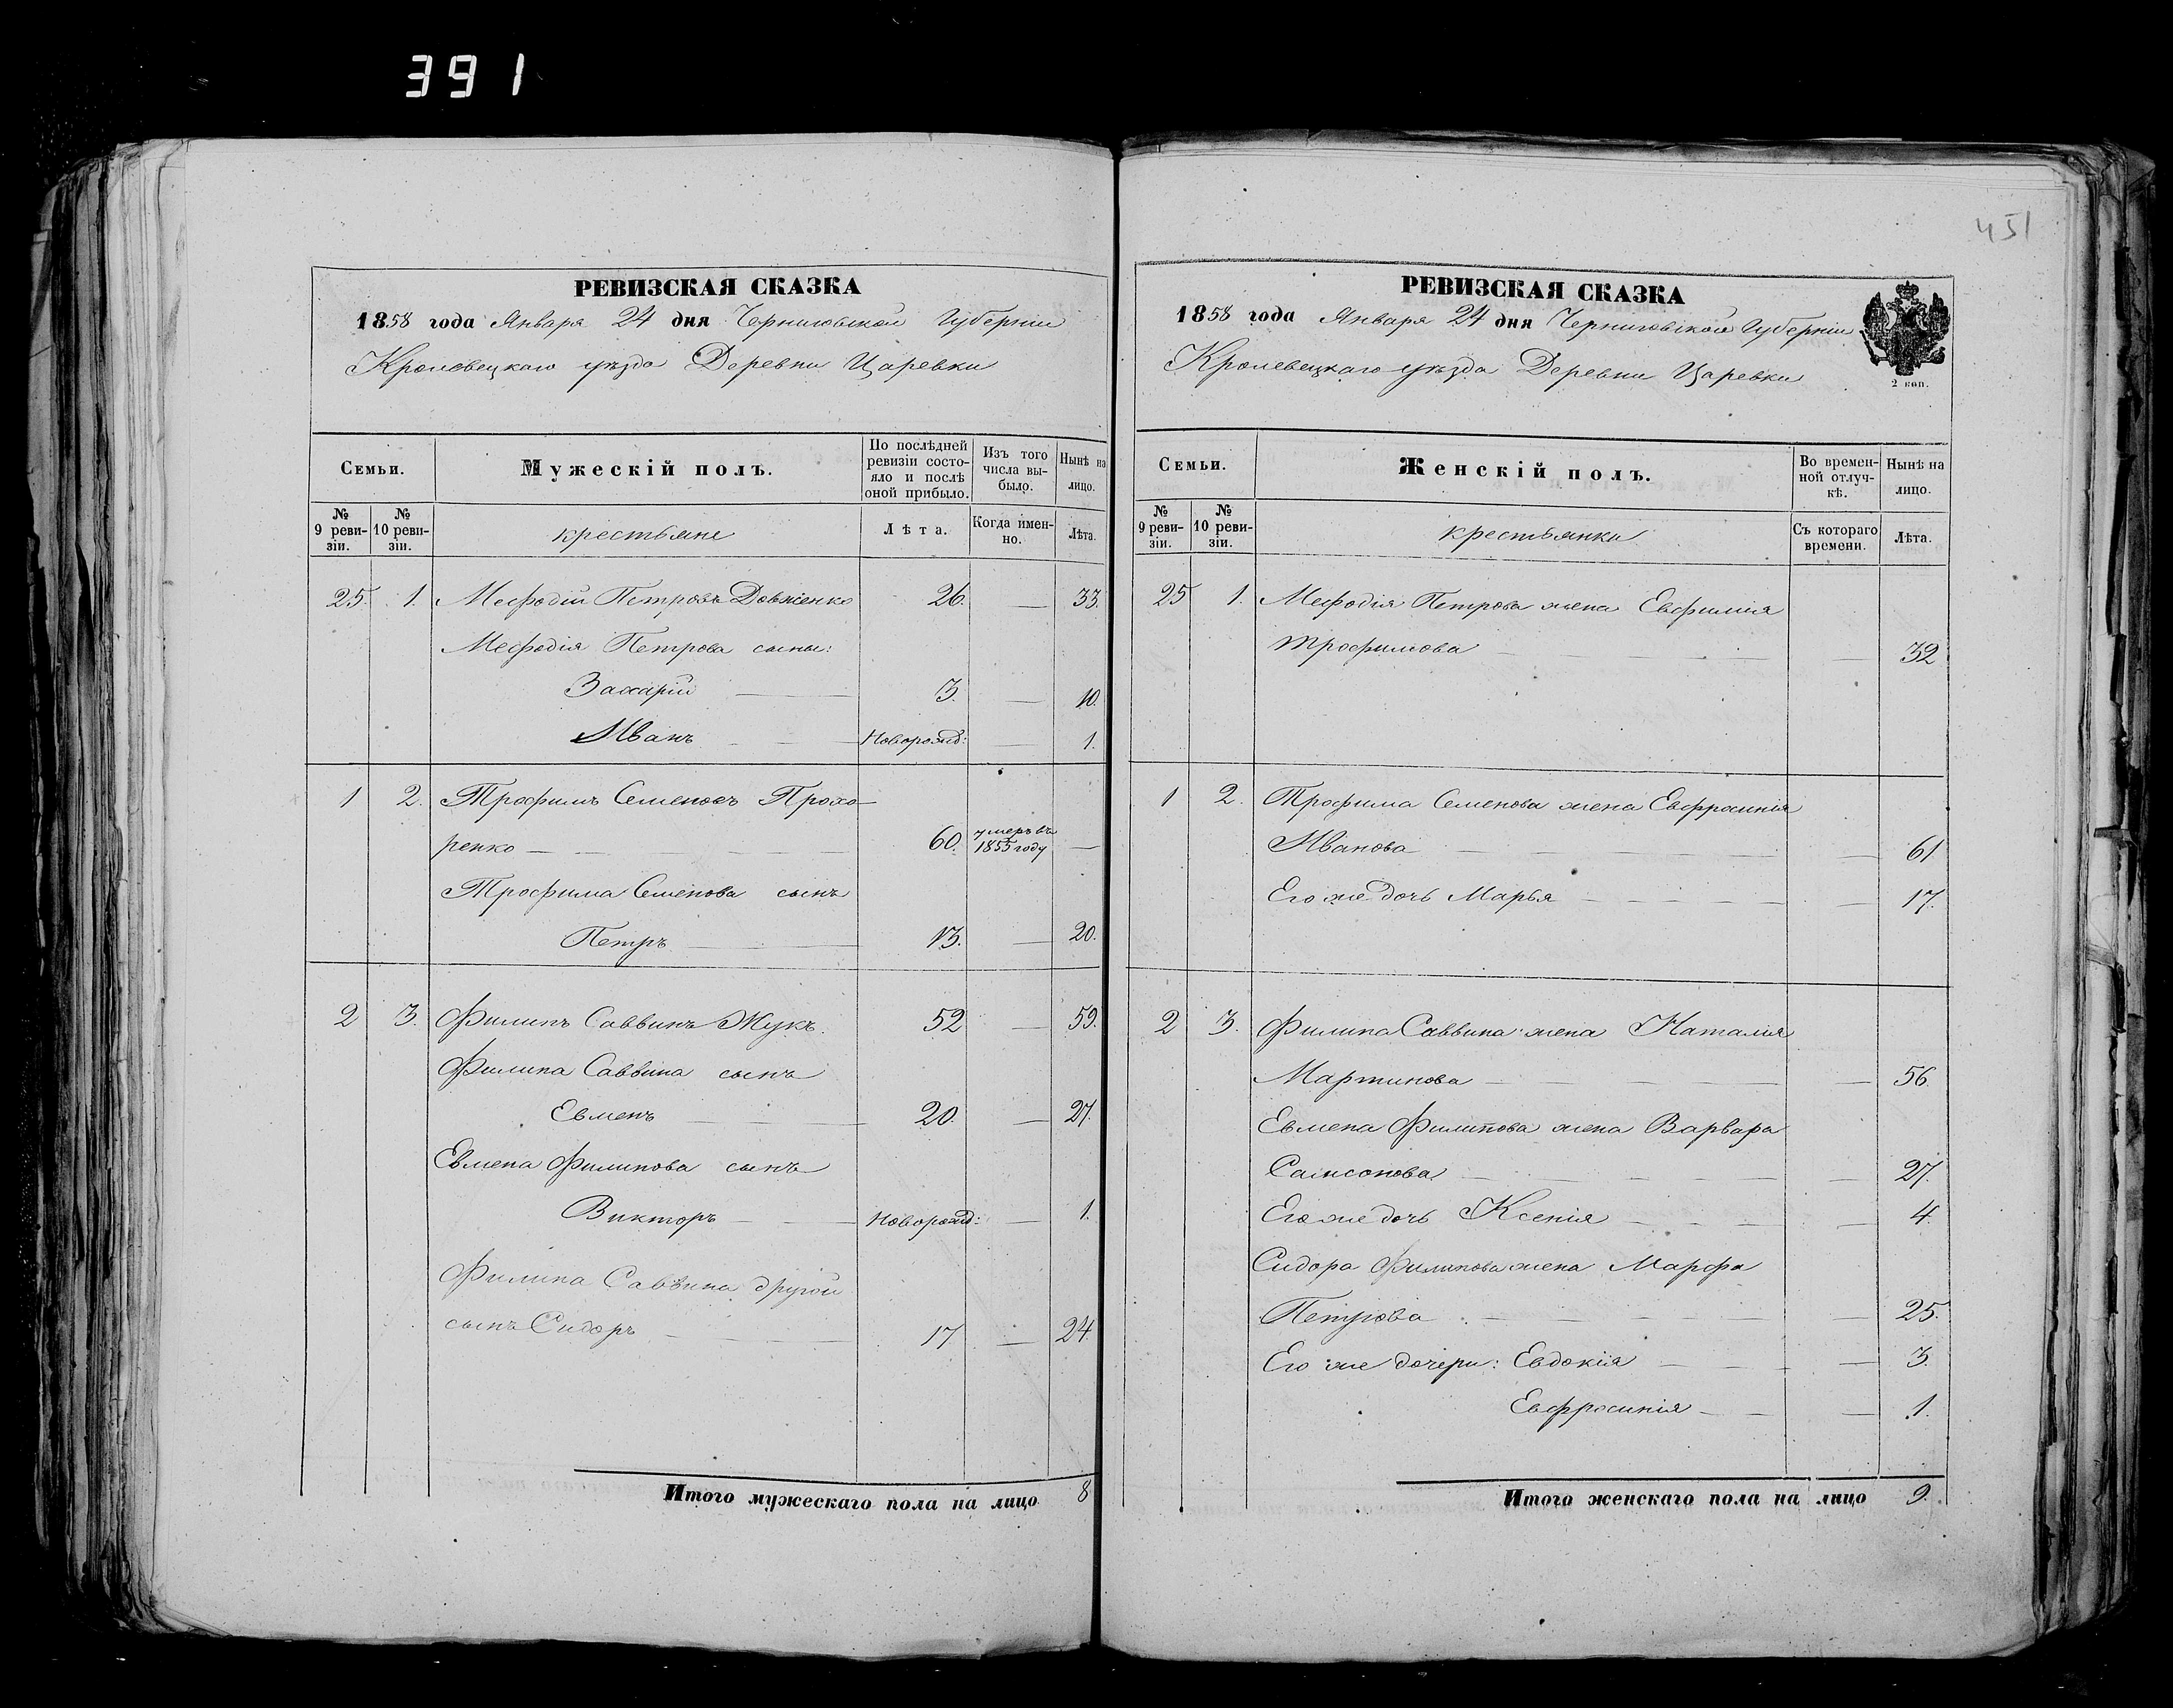 391
РЕВИЗСКАЯ СКАЗКА
1858 года Января 24 дня Черниговской Губерніи
Кролевецкаго уѣзда Деревни Царевки
Семьи.
Мужескій полъ.
По послѣдней ревизіи состояло и послѣ оной прибыло.
Изъ того числа выбыло.
Нынѣ на лицо.
№ 9 ревизіи.
№ 10 ревизіи.
крестьяне
Лѣта.
Когда именно.
Лѣта.
25. 1. Мефодій Петровъ Довженко 26. — 33.
Мефодія Петрова сыны:
Захарій — 3. — 10.
Иванъ — Новорожд: — 1.
1 2. Трофимъ Семеновъ Прохо-
ренко — 60. умеръ въ 1855 году —
Трофима Семенова сынъ
Петръ — 13. — 20.
2 3. Филипъ Саввинъ Жукъ. 52 — 59.
Филипа Саввина сынъ
Евменъ — 20. — 27.
Евмена Филипова сынъ
Викторъ — Новорожд: — 1.
Филипа Саввина другой
сынъ Сидоръ — 17 — 24.
Итого мужескаго пола на лицо 8
451
РЕВИЗСКАЯ СКАЗКА
1858 года Января 24 дня Черниговской Губерніи
Кролевецкаго уѣзда Деревни Царевки
2 коп.
Семьи.
Женскій полъ.
Во временной отлучкѣ.
Нынѣ на лицо.
№ 9 ревизіи.
№ 10 ревизіи.
крестьянки
Съ котораго времени.
Лѣта.
25 1. Мефодія Петрова жена Евфимія
Трофимова — — 32
1 2. Трофима Семенова жена Евфросинія
Иванова — — 61
Его же дочь Марья — — 17.
2 3. Филипа Саввина жена Наталія
Мартинова — — 56.
Евмена Филипова жена Варвара
Самсонова — — 27.
Его же дочь Ксенія — — 4.
Сидора Филипова жена Марфа
Петрова — — 25.
Его же дочери: Евдокія — — 3.
Евфросинія — — 1.
Итого женскаго пола на лицо 9.